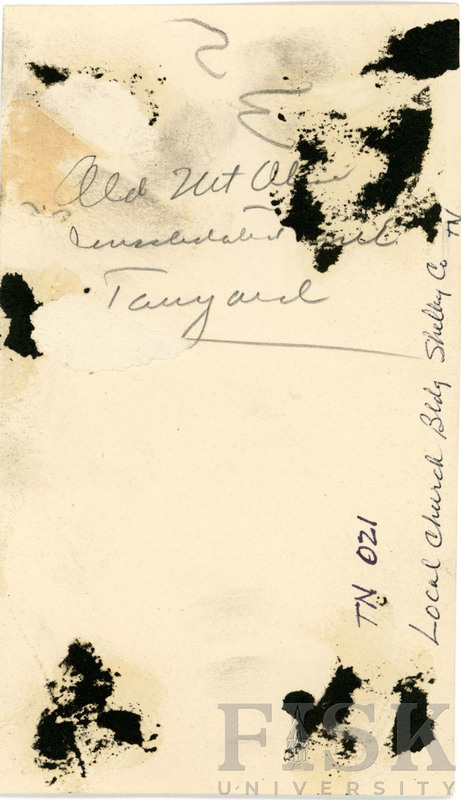 Old Mt Olive
Tanyard
Local Church Bldg Shelby Co TN
TN 021
FISK
UNIVERSITY